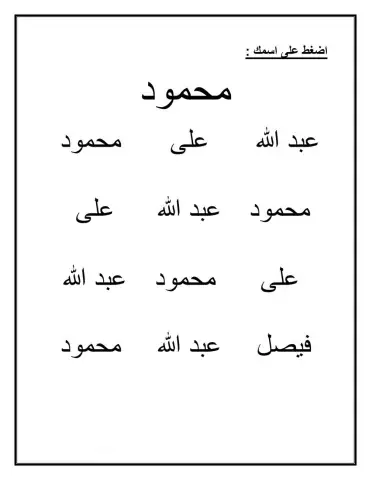 اضغط على اسمك :
محمود
عبد الله على محمود
محمود عبد الله على
على محمود عبد الله
فيصل عبد الله محمود